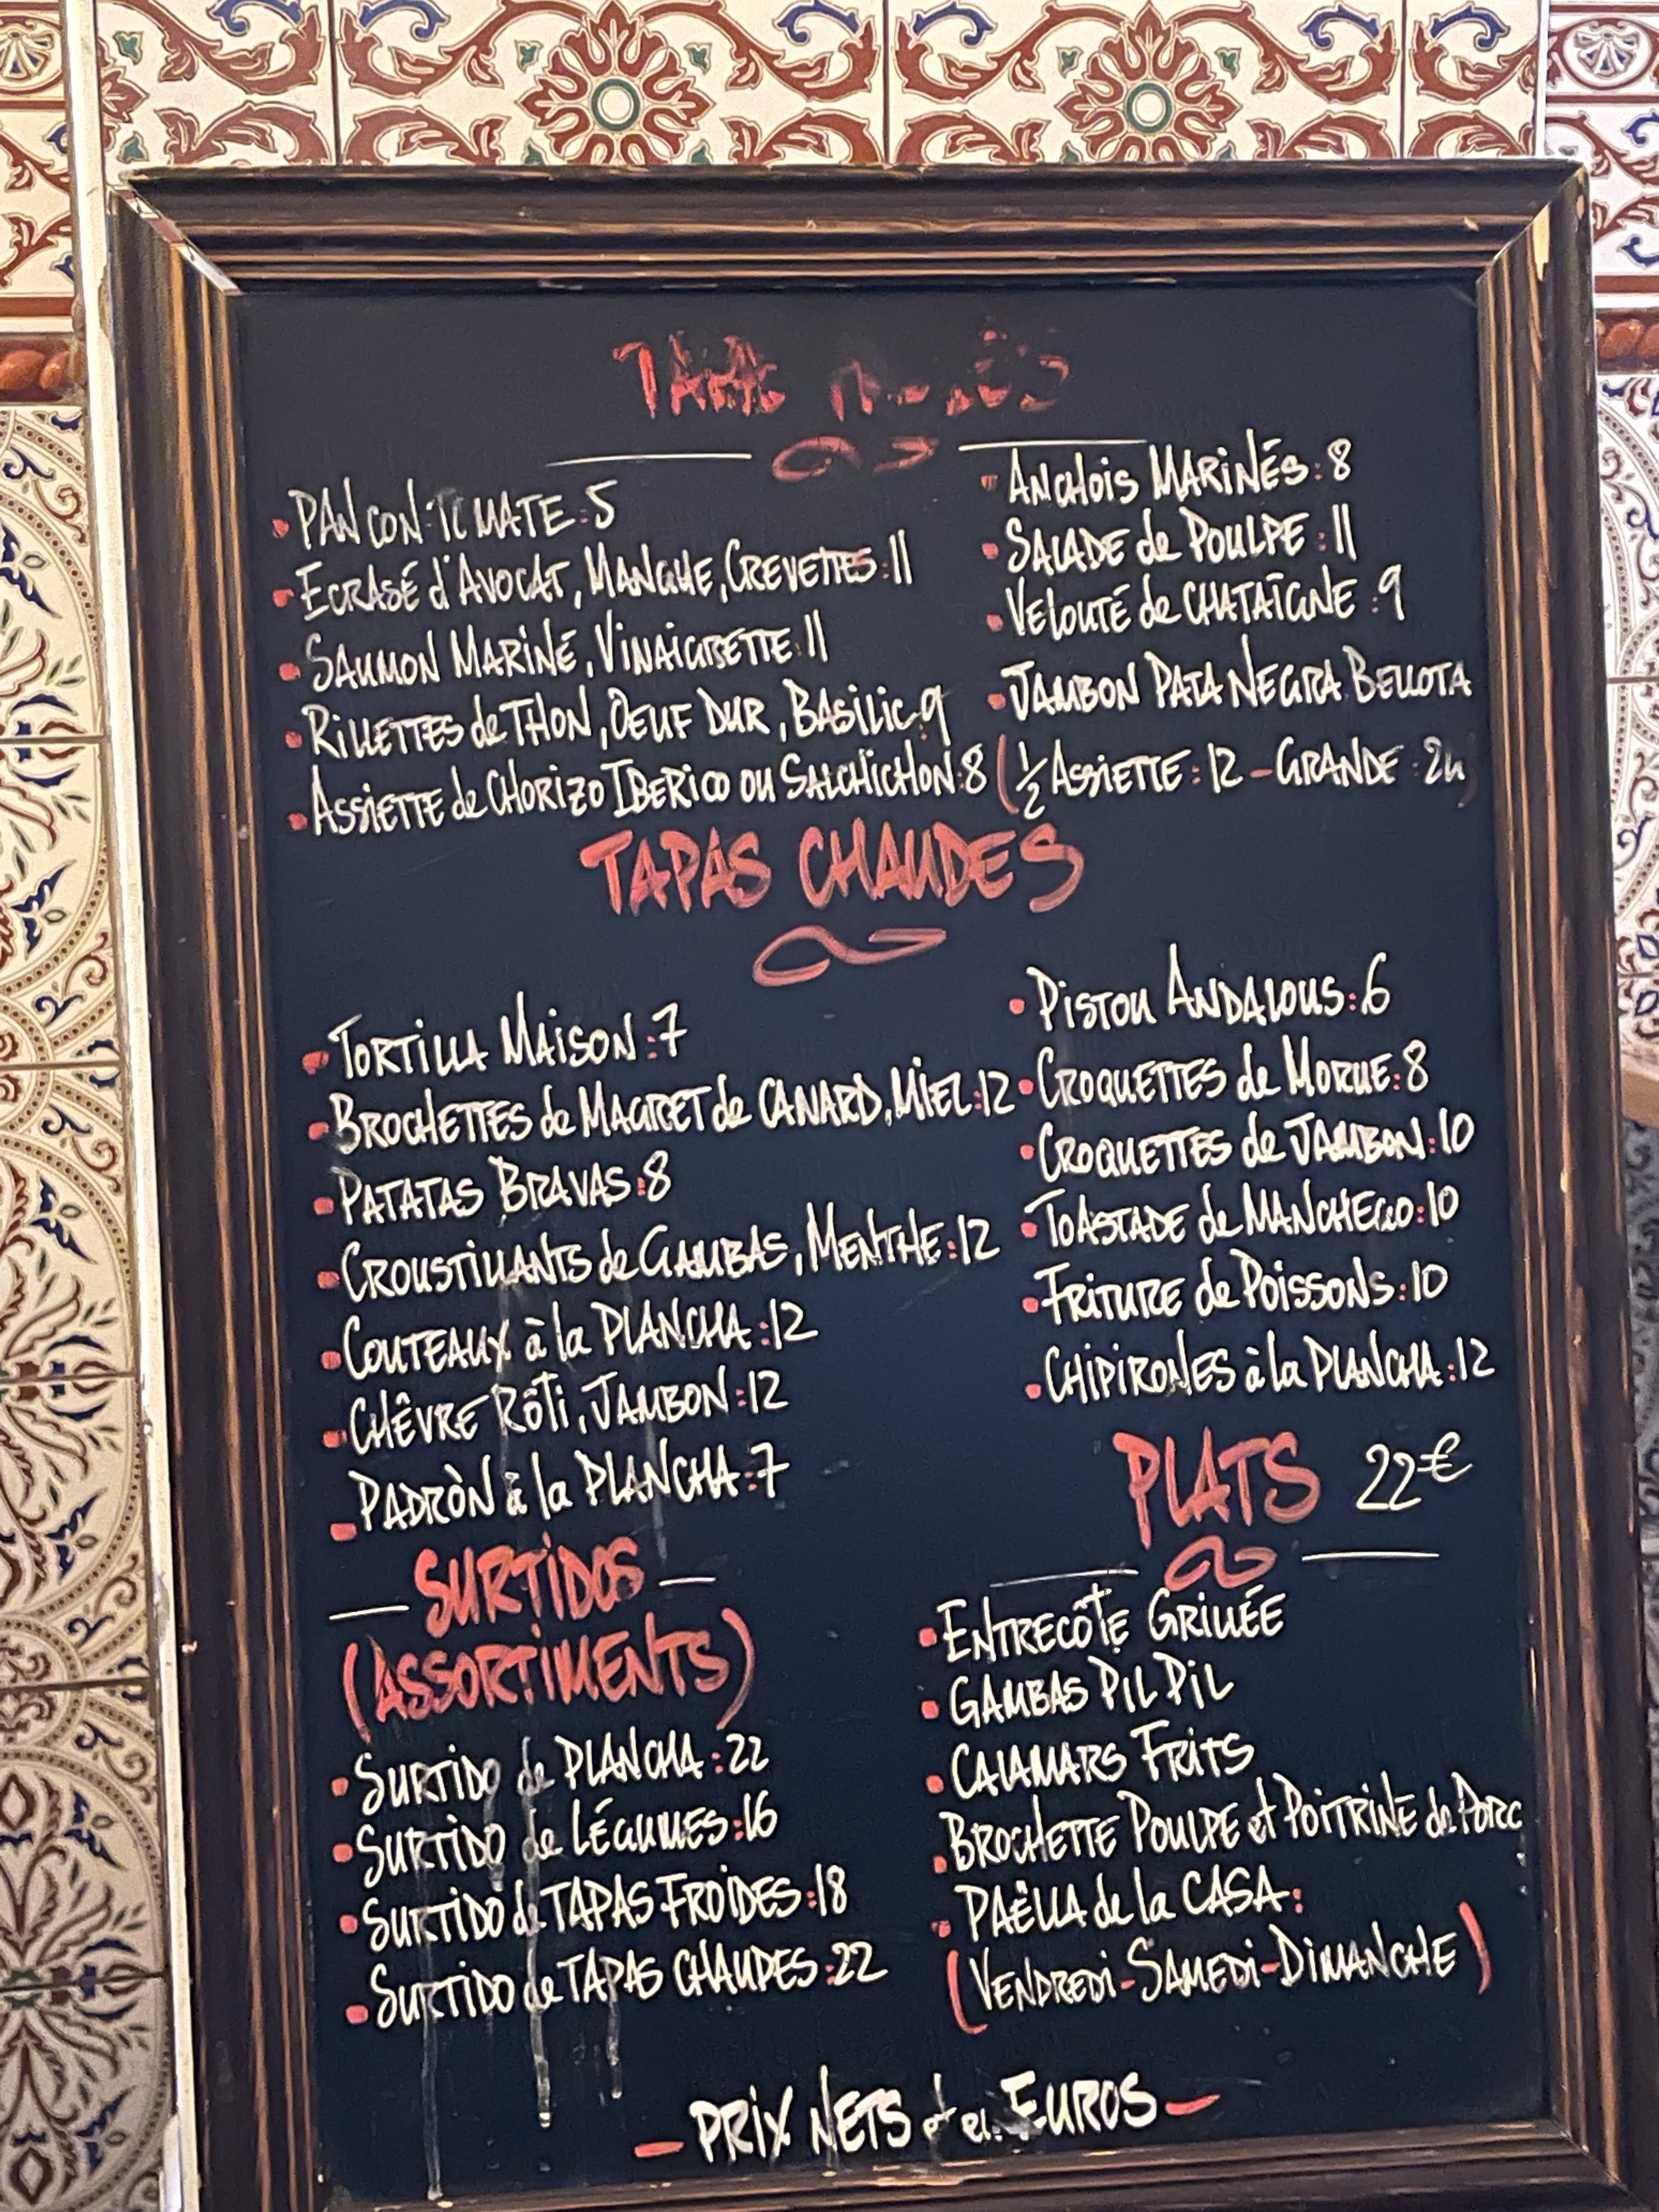 TAPAS
• PAN CON TOMATE : 5
• ECRASÉ d'AVOCAT, MANGUE, CREVETTES : 11
• SAUMON MARINÉ, VINAIGRETTE : 11
• RILLETTES de THON, OEUF DUR, BASILIC : 9
• ASSIETTE de CHORIZO IBERICO OU SALCHICHON : 8
• ANCHOIS MARINÉS : 8
• SALADE de POULPE : 11
• VELOUTÉ de CHATAÎGNE : 9
• JAMBON PATA NEGRA BELLOTA
(½ ASSIETTE : 12 - GRANDE : 24)
TAPAS CHAUDES
• TORTILLA MAISON : 7
• BROCHETTES de MAGRET de CANARD, MIEL : 12
• PATATAS BRAVAS : 8
• CROUSTILLANTS de GAMBAS, MENTHE : 12
• COUTEAUX à la PLANCHA : 12
• CHÊVRE RÔTI, JAMBON : 12
• PADRÒN à la PLANCHA : 7
• PISTOU ANDALOUS : 6
• CROQUETTES de MORUE : 8
• CROQUETTES de JAMBON : 10
• TOASTADE de MANCHEGO : 10
• FRITURE de POISSONS : 10
• CHIPIRONES à la PLANCHA : 12
— SURTIDOS —
(ASSORTIMENTS)
• SURTIDO de PLANCHA : 22
• SURTIDO de LÉGUMES : 16
• SURTIDO de TAPAS FROIDES : 18
• SURTIDO de TAPAS CHAUDES : 22
PLATS 22€
• ENTRECÔTE GRILLÉE
• GAMBAS PIL PIL
• CALAMARS FRITS
• BROCHETTE POULPE et POITRINE de PORC
• PAËLLA de la CASA :
(VENDREDI - SAMEDI - DIMANCHE)
— PRIX NETS et en EUROS —